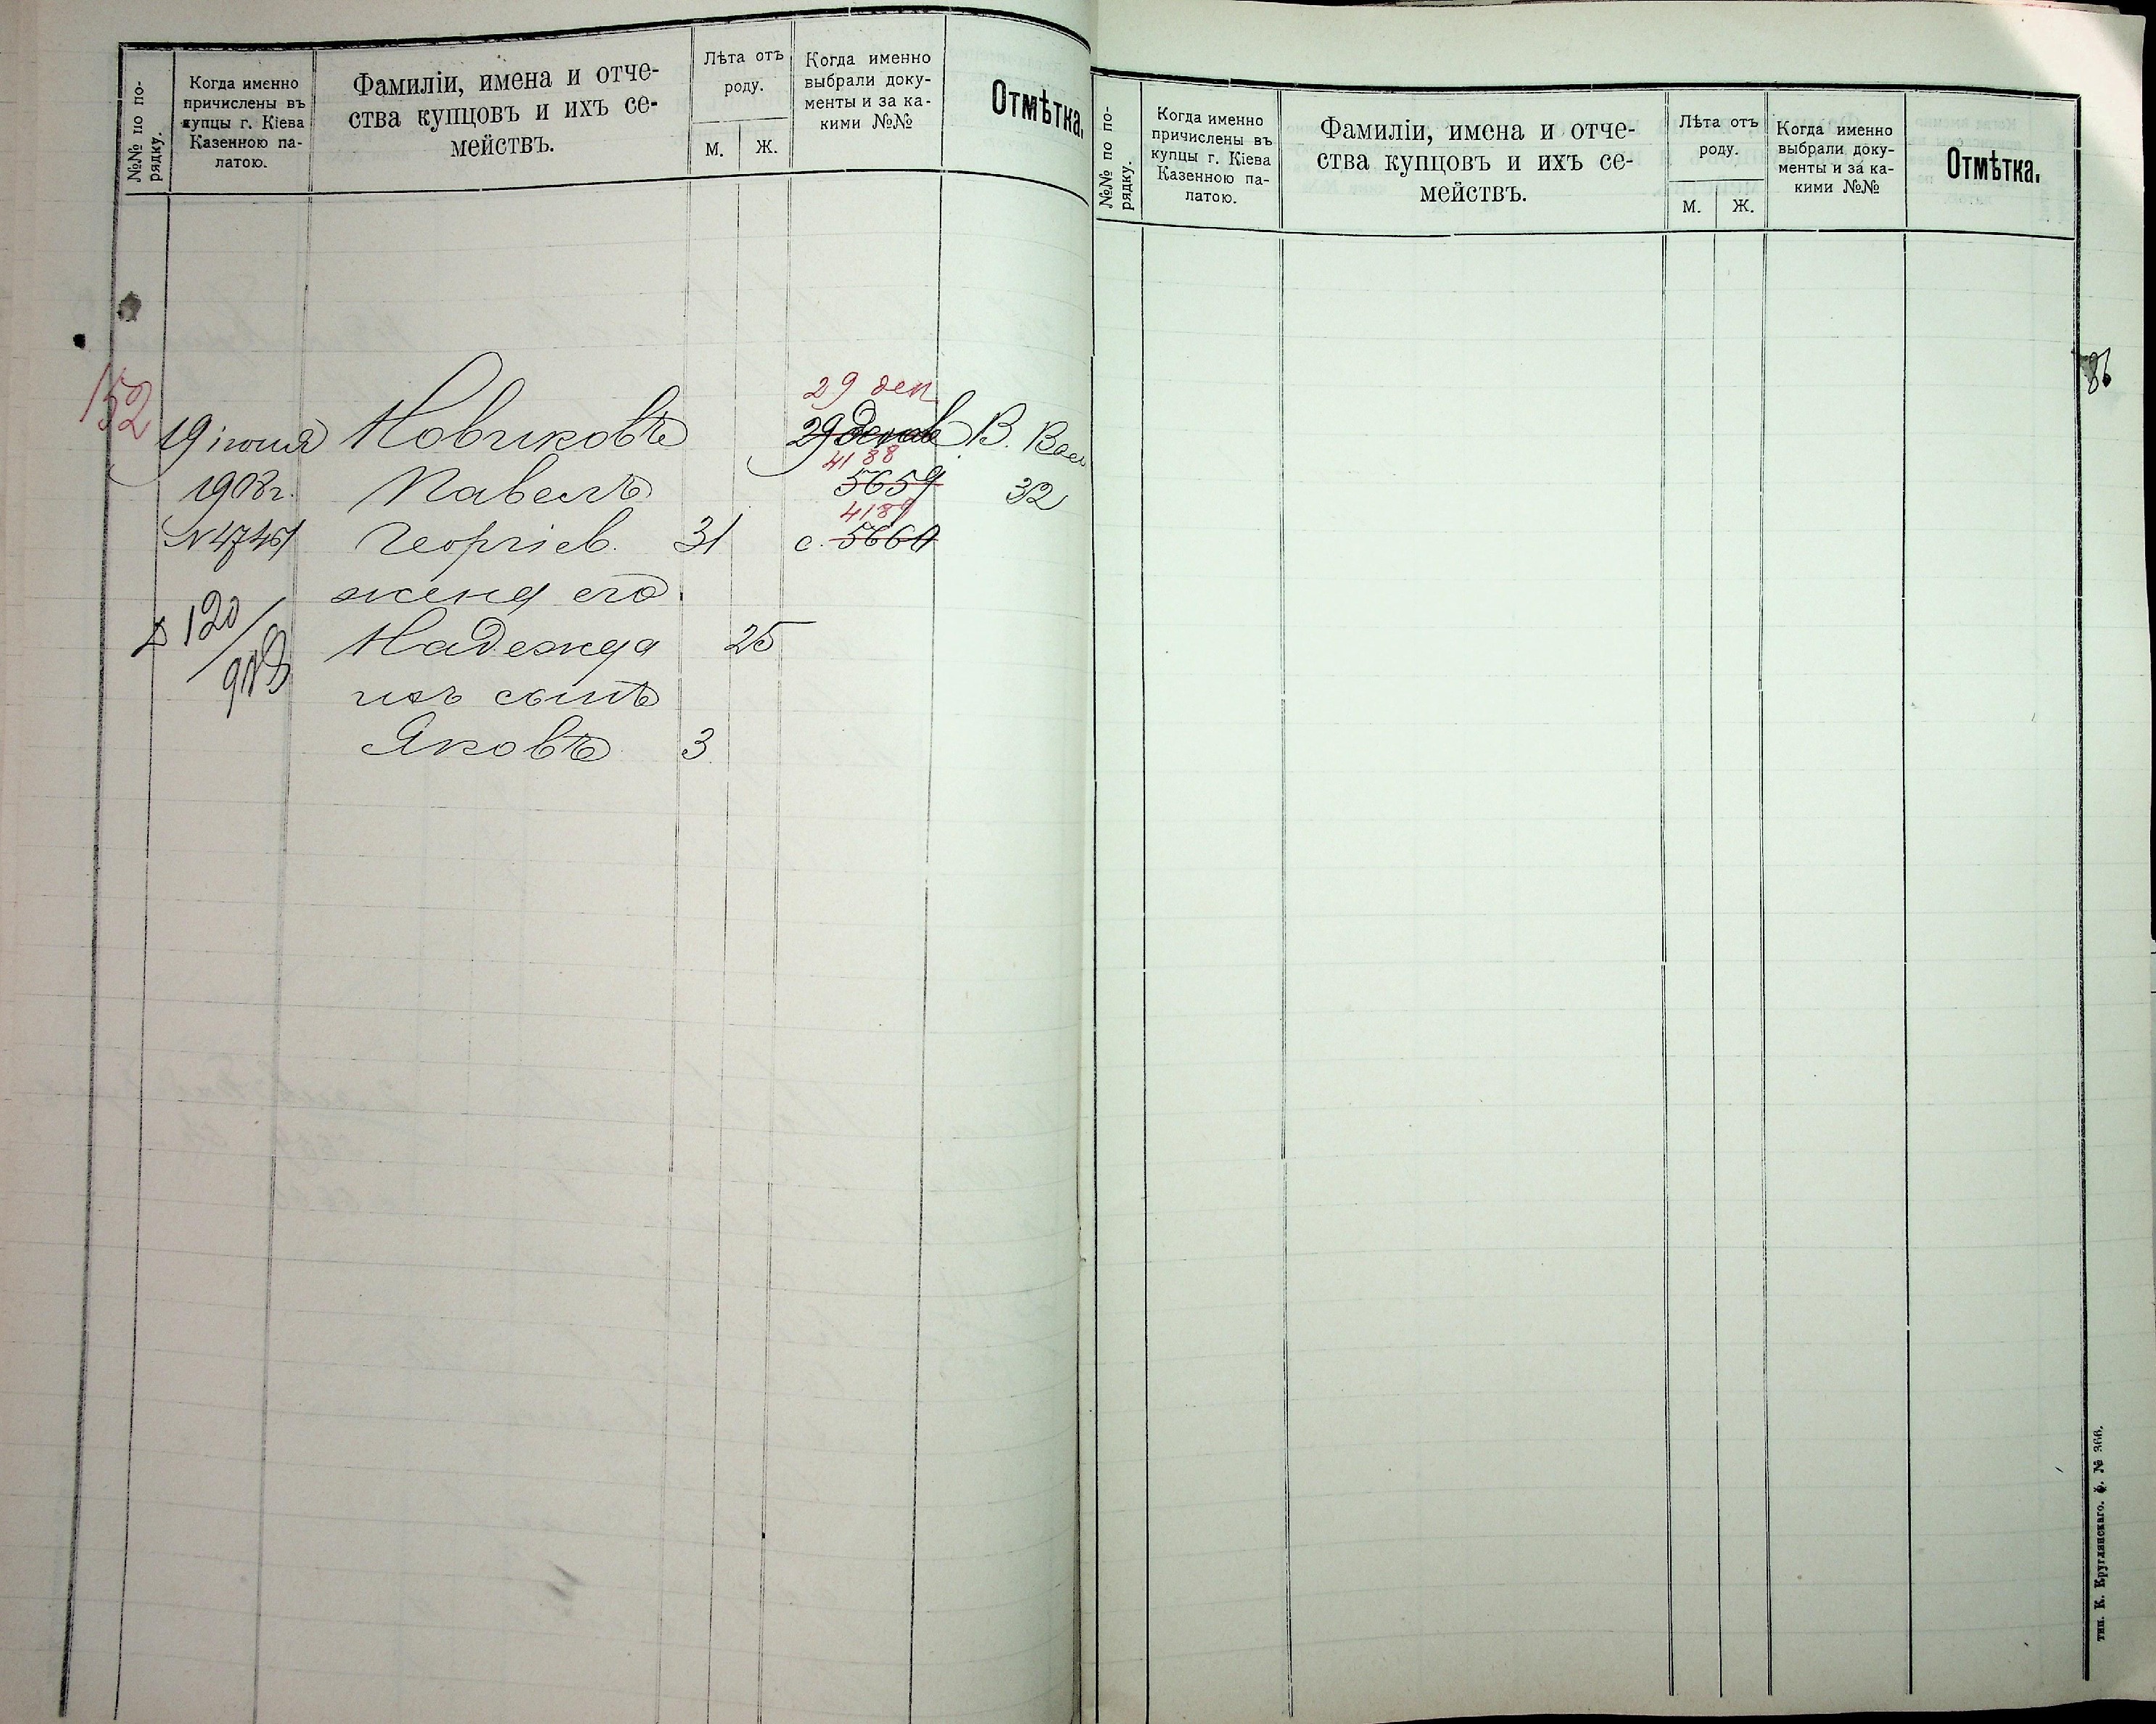 №№ по по-
рядку.
Когда именно
причислены въ
купцы г. Кіева
Казенною па-
латою.
Фамиліи, имена и отче-
ства купцовъ и ихъ се-
мействъ.
Лѣта отъ
роду.
М.
Ж.
Когда именно
выбрали доку-
менты и за ка-
кими №№
Отмѣтка.
152
19 іюня
1908 г.
Новиковъ
Павелъ
Георгіев. 31
жена его
Надежда 25
ихъ сынъ
Яковъ 3
120
29 дек
29 декаб
4188
5659
4189
с. 5660
В. Вас
32
№№ по по-
рядку.
Когда именно
причислены въ
купцы г. Кіева
Казенною па-
латою.
Фамиліи, имена и отче-
ства купцовъ и ихъ се-
мействъ.
Лѣта отъ
роду.
М.
Ж.
Когда именно
выбрали доку-
менты и за ка-
кими №№
Отмѣтка.
тип. К. Круглянскаго. ф. № 366.